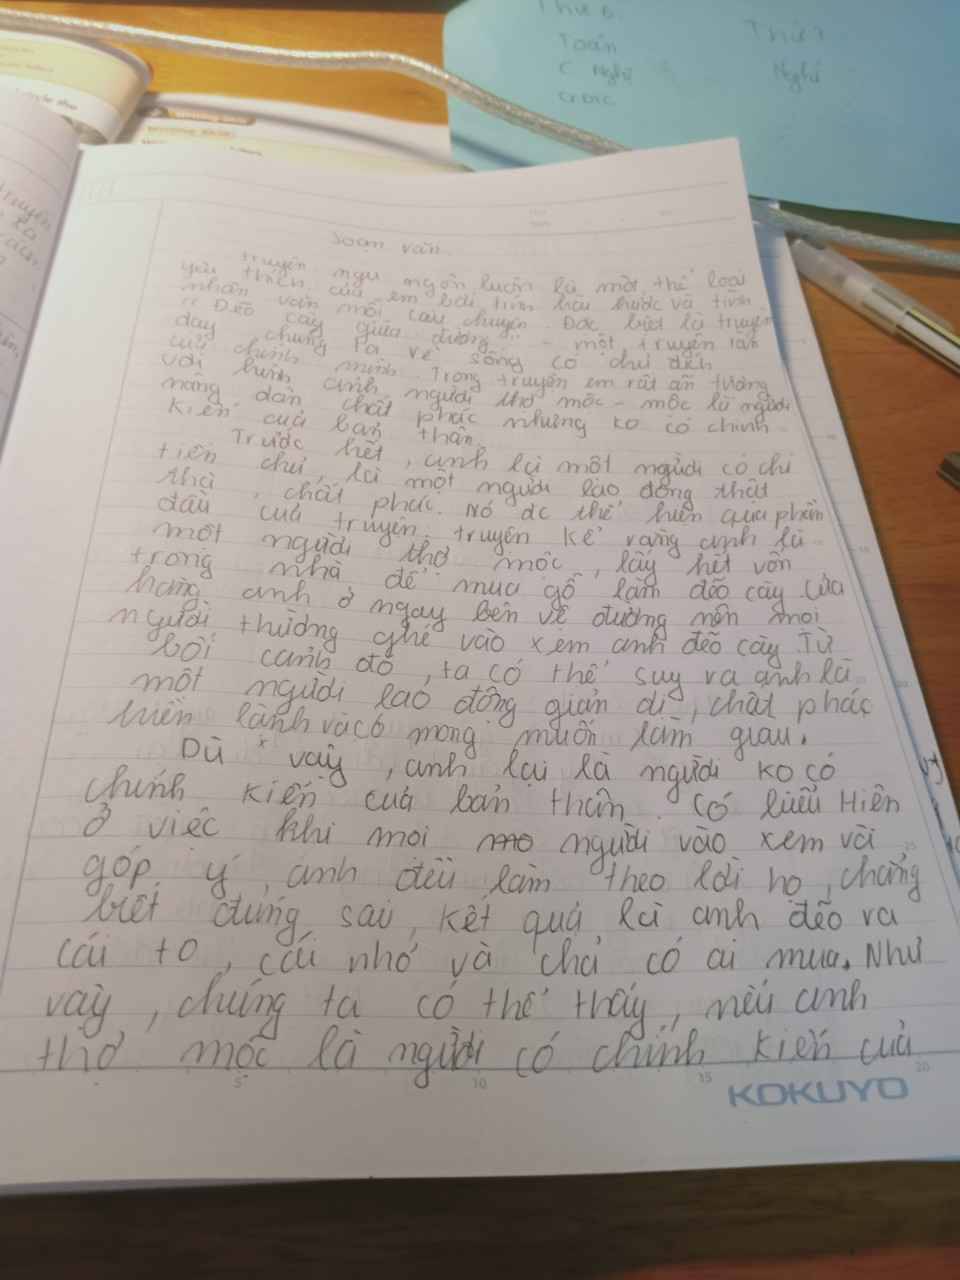 Thứ 6
Toán
C Nghệ
GDĐC
Thứ 7
Nghề
Soạn văn
truyện ngụ ngôn luôn là một thể loại
yêu thích của em bởi tính hài hước và tính
nhân văn mỗi câu chuyện. Đặc biệt là truyện
"Đẽo cày giữa đường" - một truyện răn
dạy chúng ta về sống có chủ đích
của chính mình. Trong truyện em rất ấn tượng
với hình ảnh người thợ mộc - một là người
nông dân chất phác nhưng ko có chính
kiến của bản thân.
Trước hết, anh lại một người có chí
tiến thủ, là một người lao động thật
thà, chất phác. Nó dc thể hiện qua phần
đầu của truyện, truyện kể rằng anh là
một người thợ mộc, lấy hết vốn
trong nhà để mua gỗ làm đẽo cày. Cửa
hàng anh ở ngay bên vệ đường nên mọi
người thường ghé vào xem anh đẽo cày. Từ
bối cảnh đó, ta có thể suy ra anh là
một người lao động giản dị, chất phác
hiền lành và có mong muốn làm giàu.
Dù vậy, anh lại là người ko có
chính kiến của bản thân. Có biểu Hiện
ở việc khi mọi người vào xem và
góp ý, anh đều làm theo lời họ, chẳng
biết đúng sai, kết quả là anh đẽo ra
cái to, cái nhỏ và chả có ai mua. Như
vậy, chúng ta có thể thấy, nếu anh
thợ mộc là người có chính kiến của
5 10 15 20
KOKUYO